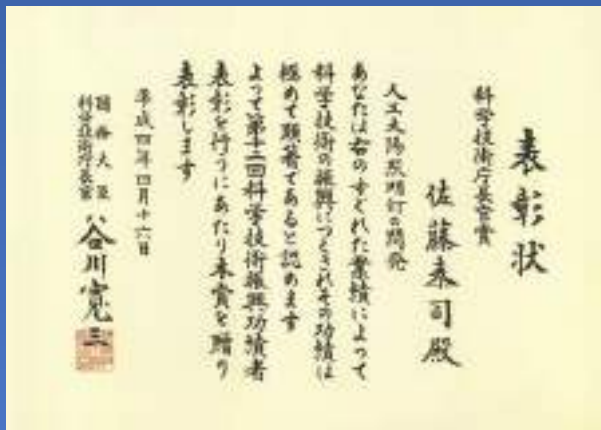 表彰状
科学技術庁長官賞
佐藤泰司殿
人工太陽照明灯の開発
あなたは右のすぐれた業績によって
科学技術の振興につくされその功績は
極めて顕著であると認めます
よって第十二回科学技術振興功績者
表彰を行うにあたり本賞を贈り
表彰します
平成四年四月十六日
国務大臣
科学技術庁長官
谷川寛三